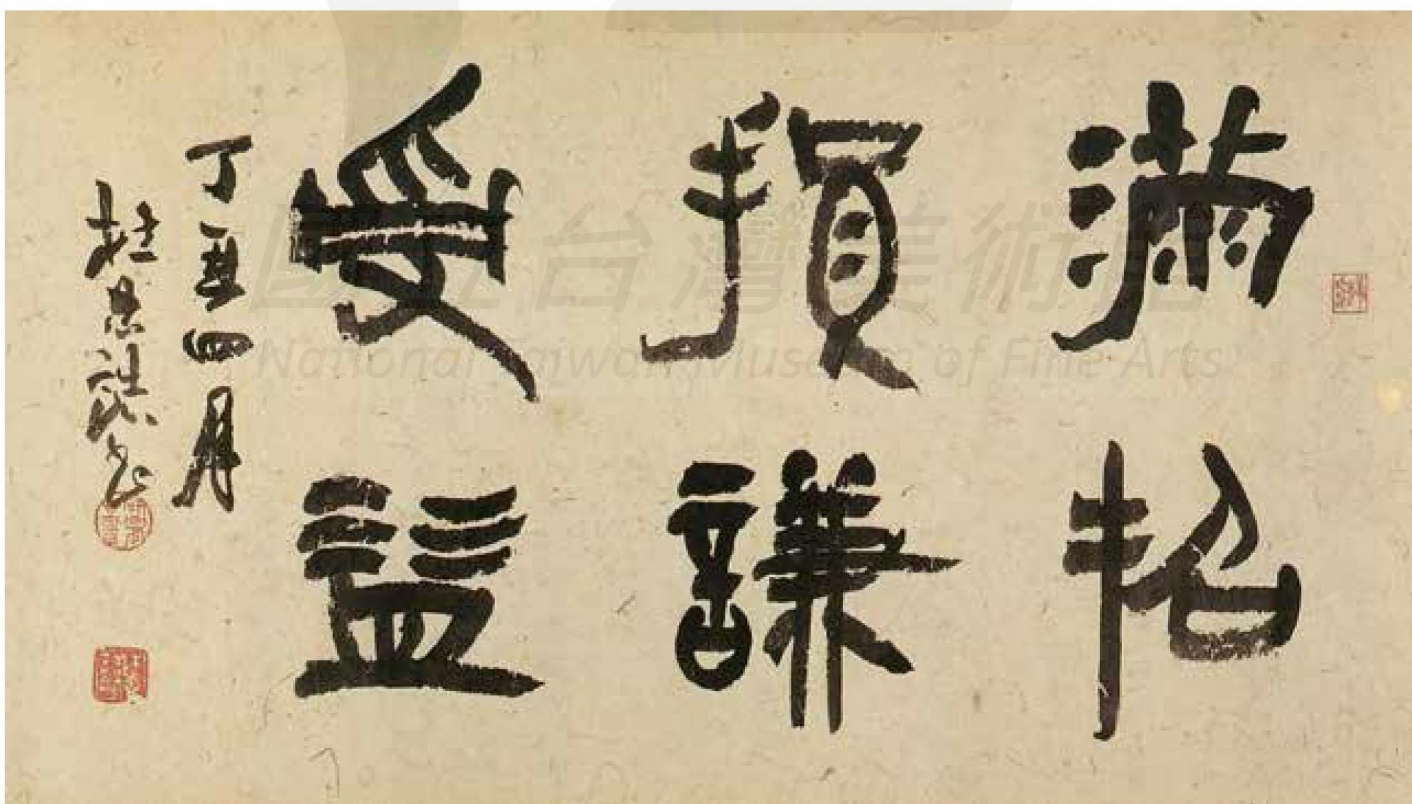 滿招
損謙
受益
丁酉四月
杜忠誥書
國立台灣美術館
National Taiwan Museum of Fine Arts